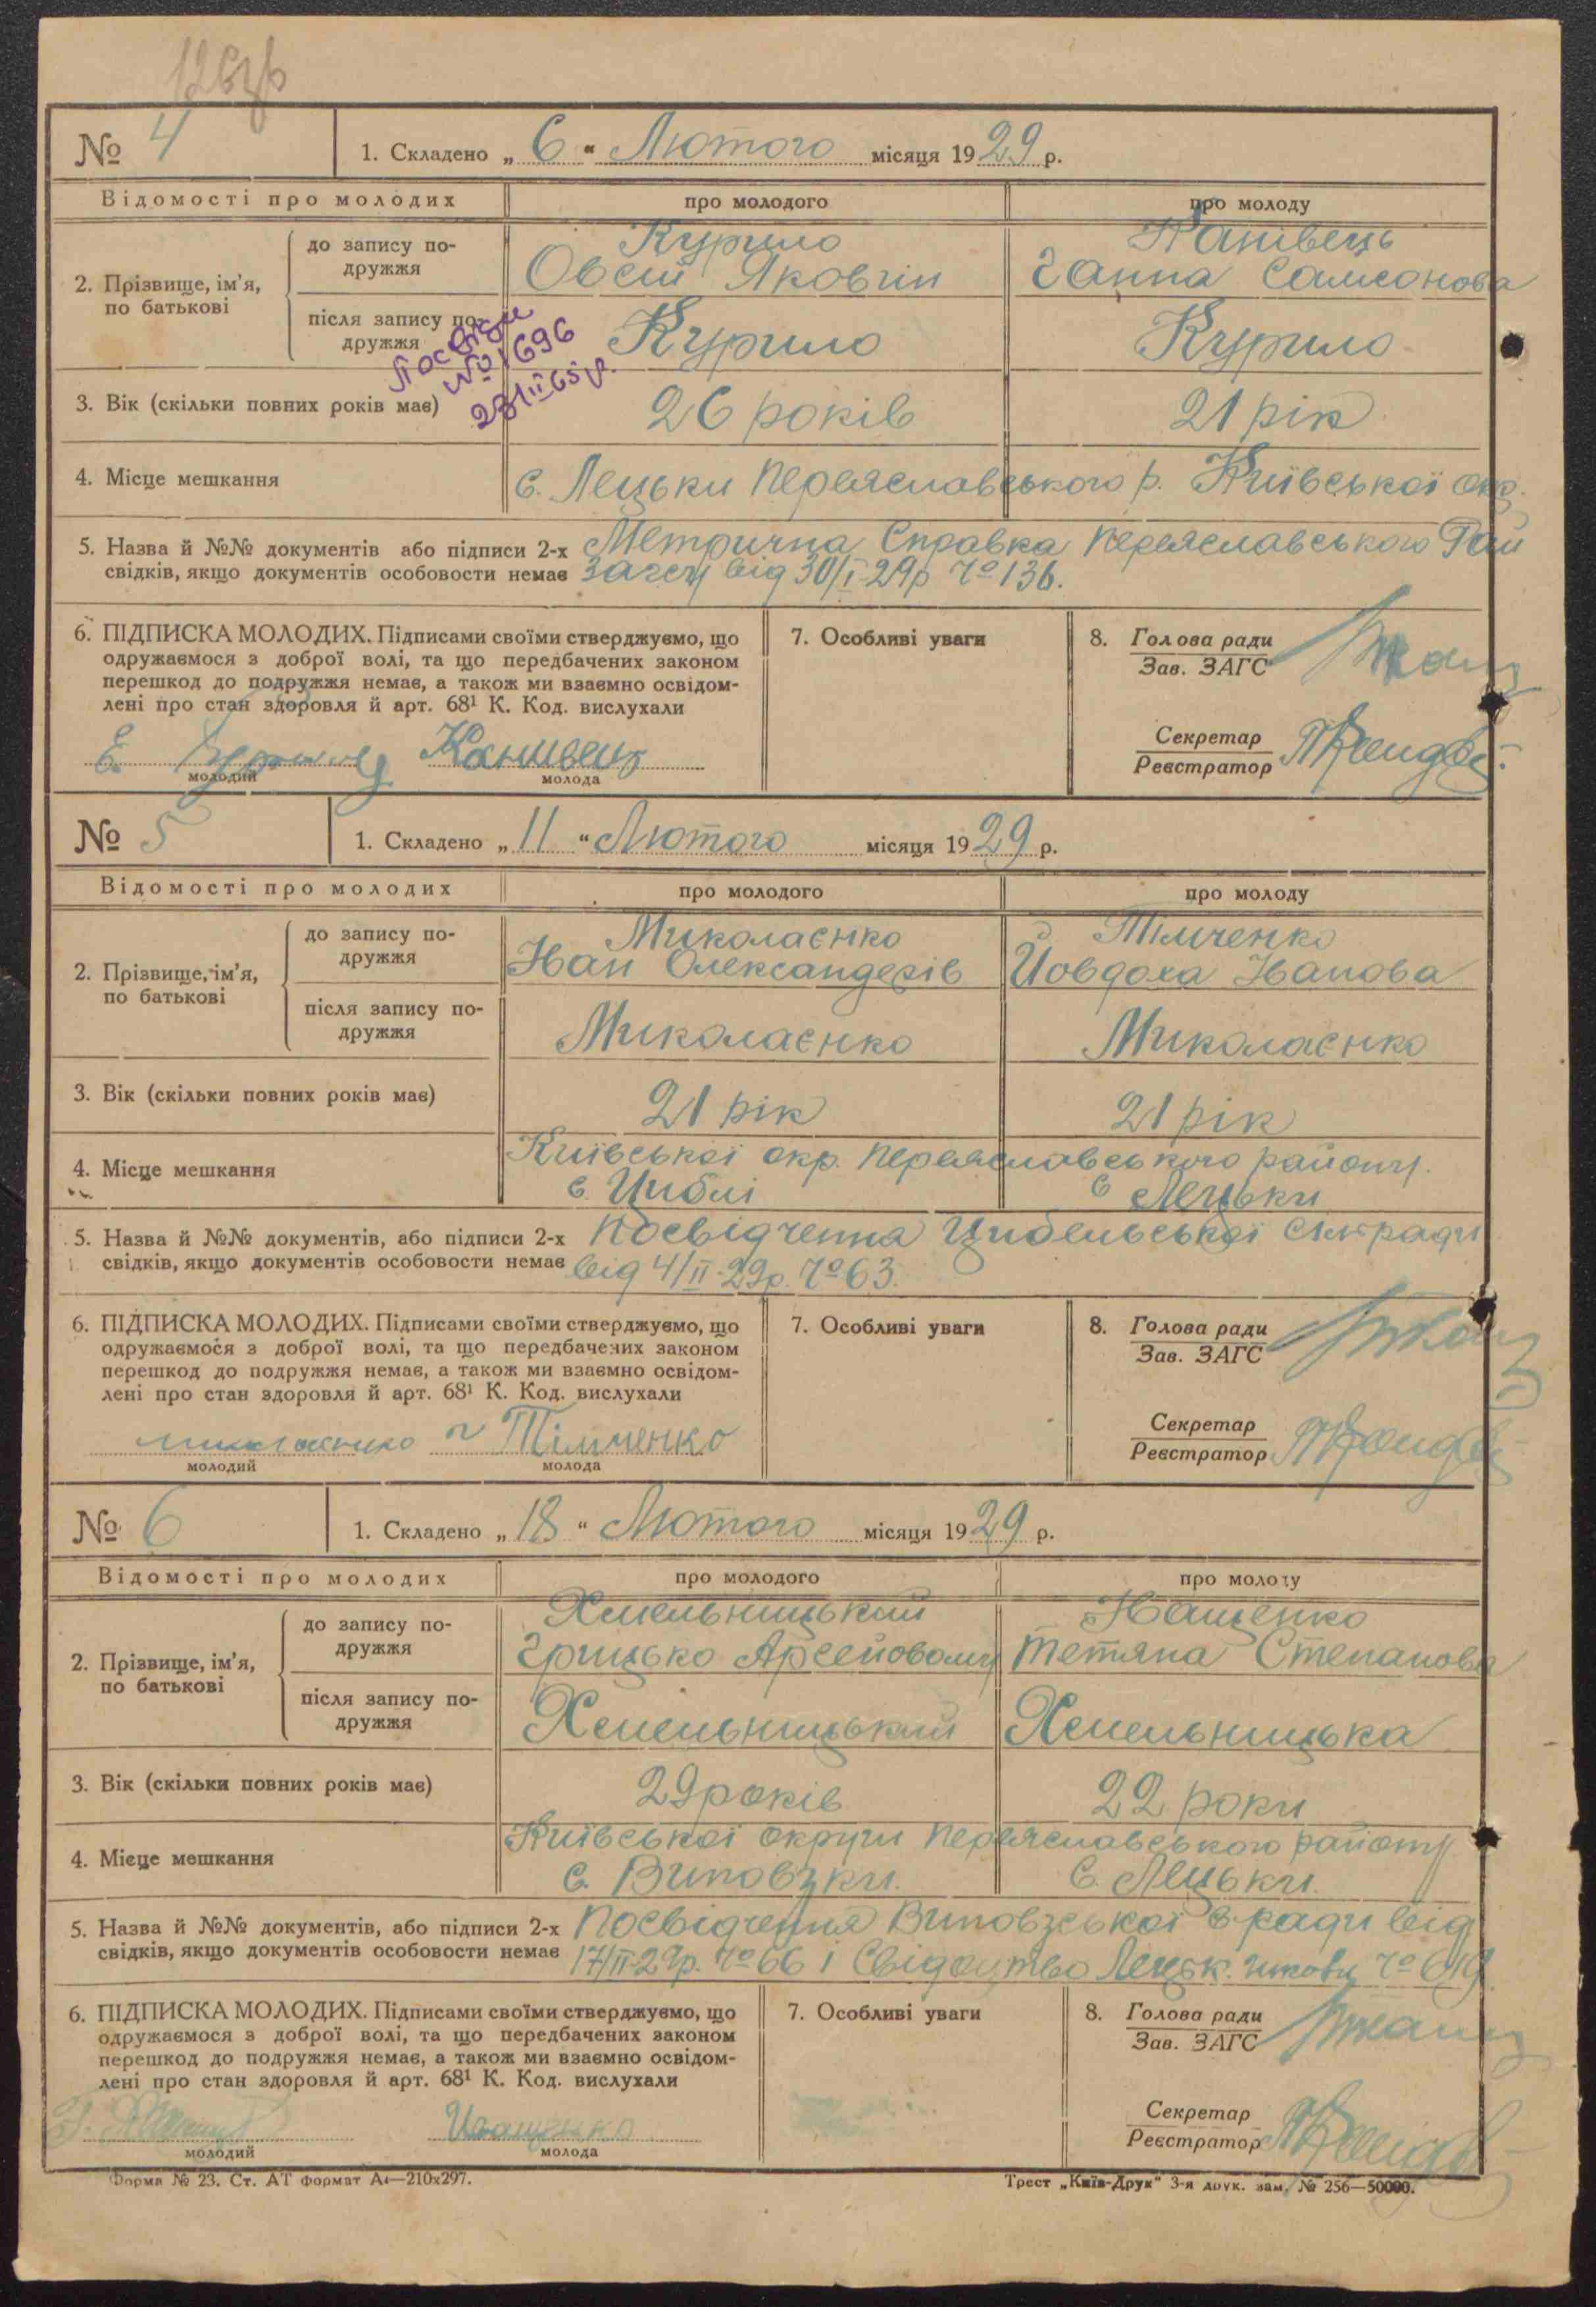 № 4 1. Складено „6“ Лютого місяця 1929 р.
Відомості про молодих про молодого про молоду
2. Прізвище, ім'я, по батькові
до запису по-
дружжя
Курило Канівець
Овсій Яковлів Ганна Самсонова
після запису по-
дружжя
Курило Курило
Посвідч
№ 1696
23/II 65 р.
3. Вік (скільки повних років має) 26 років 21 рік
4. Місце мешкання с. Лецьки Переяславського р. Київської окр.
5. Назва й №№ документів або підписи 2-х Метрична Справка Переяславського Рай
свідків, якщо документів особовости немає загсу від 30/I-29р № 136.
6. ПІДПИСКА МОЛОДИХ. Підписами своїми стверджуємо, що
одружаємося з доброї волі, та що передбачених законом
перешкод до подружжя немає, а також ми взаємно освідом-
лені про стан здоровля й арт. 68¹ К. Код. вислухали
Канивець
молодий молода
7. Особливі уваги
8. Голова ради
Зав. ЗАГС
Секретар
Реєстратор
№ 5 1. Складено „11“ Лютого місяця 1929 р.
Відомості про молодих про молодого про молоду
2. Прізвище, ім'я,
по батькові
до запису по-
дружжя
Миколаєнко Тімченко
Іван Олександрів Йовдоха Іванова
після запису по-
дружжя
Миколаєнко Миколаєнко
3. Вік (скільки повних років має) 21 рік 21 рік
4. Місце мешкання Київської окр. Переяславського району.
с. Циблі с Лецьки
5. Назва й №№ документів, або підписи 2-х Посвідчення Цибельської сільради
свідків, якщо документів особовости немає від 4/II-29р. № 63.
6. ПІДПИСКА МОЛОДИХ. Підписами своїми стверджуємо, що
одружаємося з доброї волі, та що передбачених законом
перешкод до подружжя немає, а також ми взаємно освідом-
лені про стан здоровля й арт. 68¹ К. Код. вислухали
миколаєнко Тімченко
молодий молода
7. Особливі уваги
8. Голова ради
Зав. ЗАГС
Секретар
Реєстратор
№ 6 1. Складено „18“ Лютого місяця 1929 р.
Відомості про молодих про молодого про молоду
2. Прізвище, ім'я,
по батькові
до запису по-
дружжя
Хмельницький Іващенко
Грицько Арсейович Тетяна Степанова
після запису по-
дружжя
Хмельницький Хмельницька
3. Вік (скільки повних років має) 29 років 22 роки
4. Місце мешкання Київської округи Переяславського району
с. Виповзки. с. Лецьки.
5. Назва й №№ документів, або підписи 2-х Посвідчення Виповзської с-ради від
свідків, якщо документів особовости немає 17/II-29р. № 66 і Свідоцтво Лецьк. № 619
6. ПІДПИСКА МОЛОДИХ. Підписами своїми стверджуємо, що
одружаємося з доброї волі, та що передбачених законом
перешкод до подружжя немає, а також ми взаємно освідом-
лені про стан здоровля й арт. 68¹ К. Код. вислухали
Иващенко
молодий молода
7. Особливі уваги
8. Голова ради
Зав. ЗАГС
Секретар
Реєстратор
Форма № 23. Ст. АТ формат А4—210х297. Трест „Київ-Друк“ 3-я друк. зам. № 256—50000.